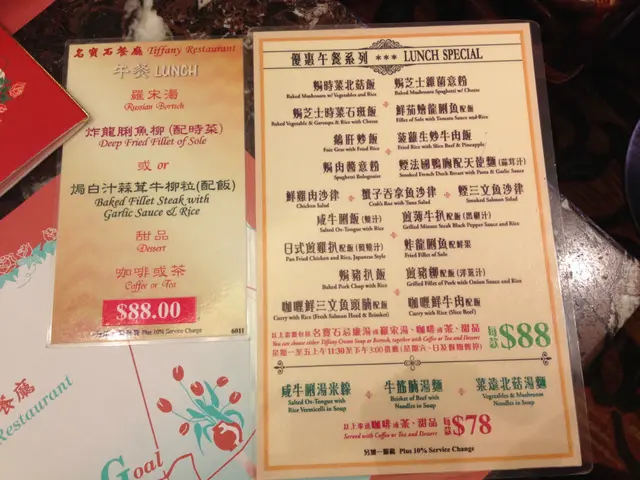 名寶石餐廳 Tiffany Restaurant
午餐 LUNCH
羅宋湯
Russian Bortsch
炸龍脷魚柳 (配時菜)
Deep Fried Fillet of Sole
或 or
焗白汁蒜茸牛柳粒(配飯)
Baked Fillet Steak with
Garlic Sauce & Rice
甜品
Dessert
咖啡或茶
Coffee or Tea
$88.00
Plus 10% Service Charge 6011
優惠午餐系列 *** LUNCH SPECIAL
焗時菜北菇飯 焗芝士雜菌意粉
Baked Mushroom w/ Vegetables and Rice Baked Mushroom Spaghetti w/ Cheese
焗芝士時菜石斑飯 鮮茄燴龍脷魚配飯
Baked Vegetable & Garoupa & Rice with Cheese Fillet of Sole with Tomato Sauce and Rice
鵝肝炒飯 菠蘿生炒牛肉飯
Foie Gras with Fried Rice Fried Rice with Slice Beef & Pineapple
焗肉醬意粉 煙法國鴨胸配天使麵(蒜茸汁)
Spaghetti Bolognaise Smoked French Duck Breast with Pasta & Garlic Sauce
鮮雞肉沙律 蟹子吞拿魚沙律 煙三文魚沙律
Chicken Salad Crab's Roe with Tuna Salad Smoked Salmon Salad
咸牛脷飯(燒汁) 煎薄牛扒配飯(黑椒汁)
Salted Ox-Tongue with Rice Grilled Minute Steak Black Pepper Sauce and Rice
日式煎雞扒配飯(燒汁) 炸龍脷魚配鮮果
Pan Fried Chicken and Rice, Japanese Style Fried Fillet of Sole
焗豬扒飯 煎豬柳配飯(洋葱汁)
Baked Pork Chop with Rice Grilled Fillet of Pork with Onion Sauce and Rice
咖喱鮮三文魚頭腩配飯 咖喱鮮牛肉配飯
Curry with Rice (Fresh Salmon Head & Brisket) Curry with Rice (Slice Beef)
以上餐類包括名寶石忌廉湯或羅宋湯、咖啡或茶、甜品
You can choose either Tiffany Cream Soup or Bortsch, together with Coffee or Tea and Dessert
星期一至五上午11:30至下午3:00供應(星期六、日及假期例停)
每款$88
咸牛脷湯米粉 牛筋腩湯麵 菜遠北菇湯麵
Salted Ox-Tongue with Brisket of Beef with Vegetables & Mushroom
Rice Vermicelli in Soup Noodles in Soup Noodles in Soup
以上奉送咖啡或茶、甜品
Served with Coffee or Tea and Dessert
每款$78
另加一服務 Plus 10% Service Charge
餐廳
Restaurant
Goal